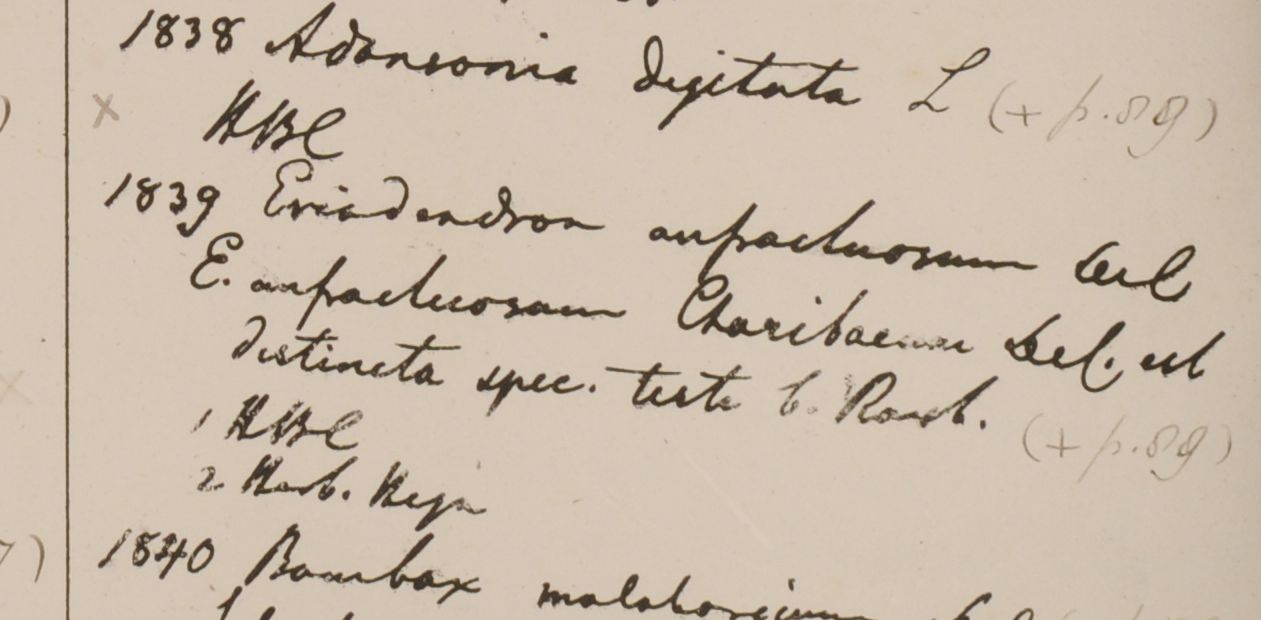 1838 Adansonia digitata L (+ p. 89)
x HBC
1839 Eriodendron anfractuosum Decl
E. anfractuosum Charibaeum Decl. est
distincta spec. teste C. Roxb.
(+ p. 89)
1 HBC
2 Herb. Heyn
1840 Bombax malabaricum